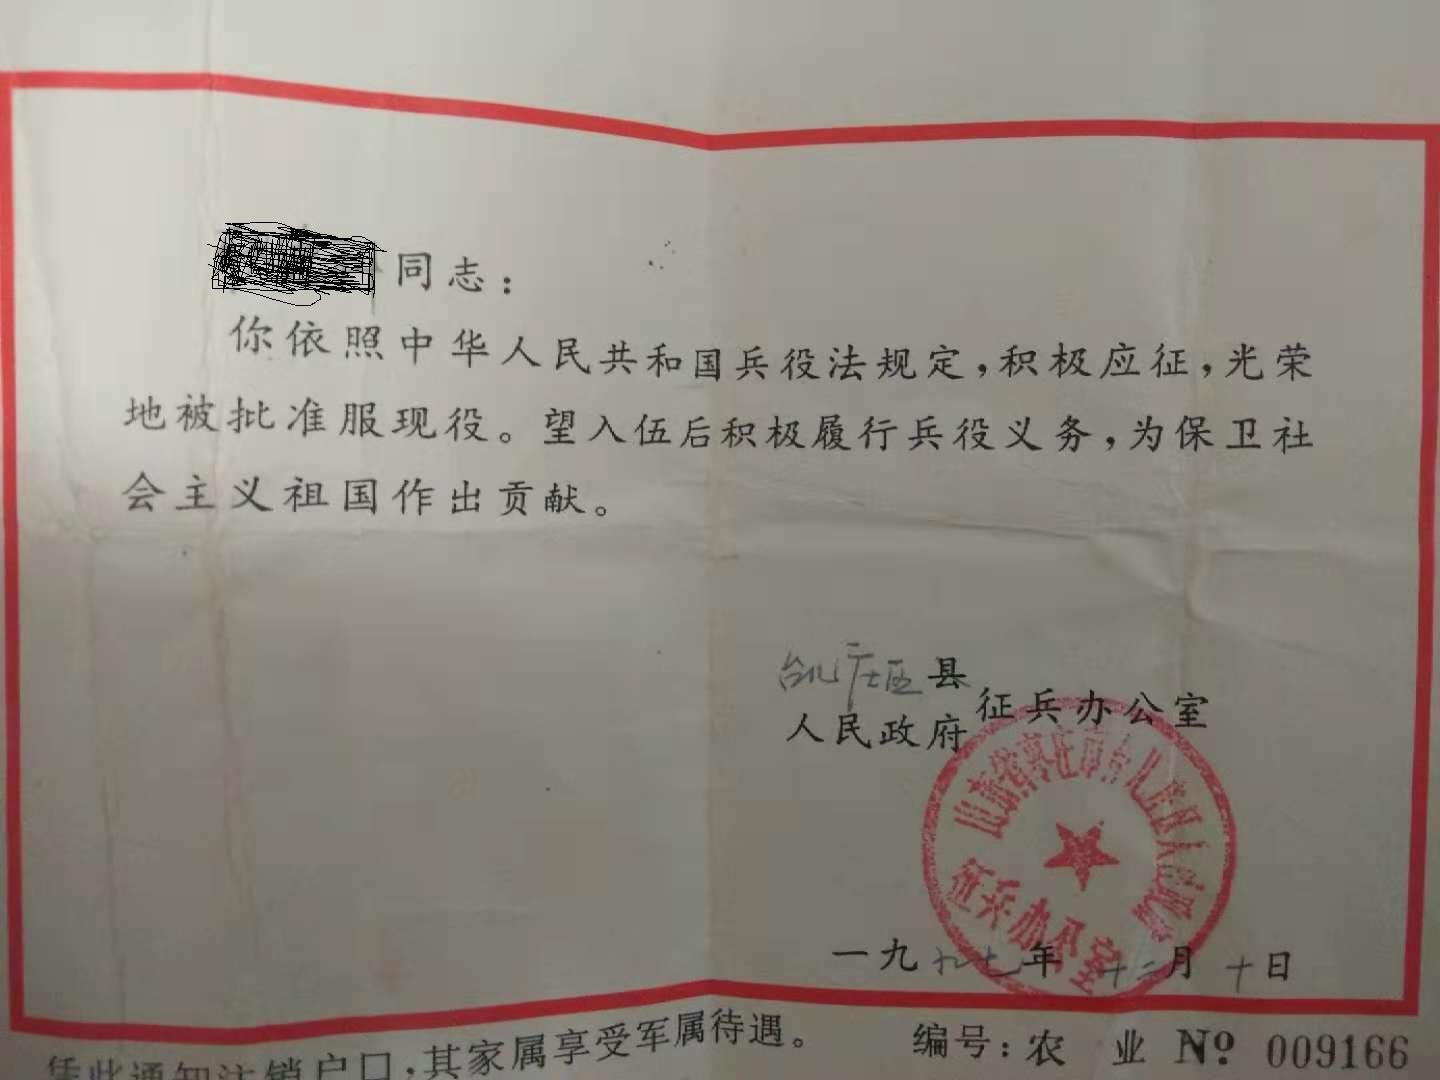 同志：
你依照中华人民共和国兵役法规定，积极应征，光荣
地被批准服现役。望入伍后积极履行兵役义务，为保卫社
会主义祖国作出贡献。
台儿庄区县
人民政府征兵办公室
山东省枣庄市台儿庄区人民政府
征兵办公室
一九九七年十二月十日
凭此通知注销户口，其家属享受军属待遇。
编号：农业 № 009166